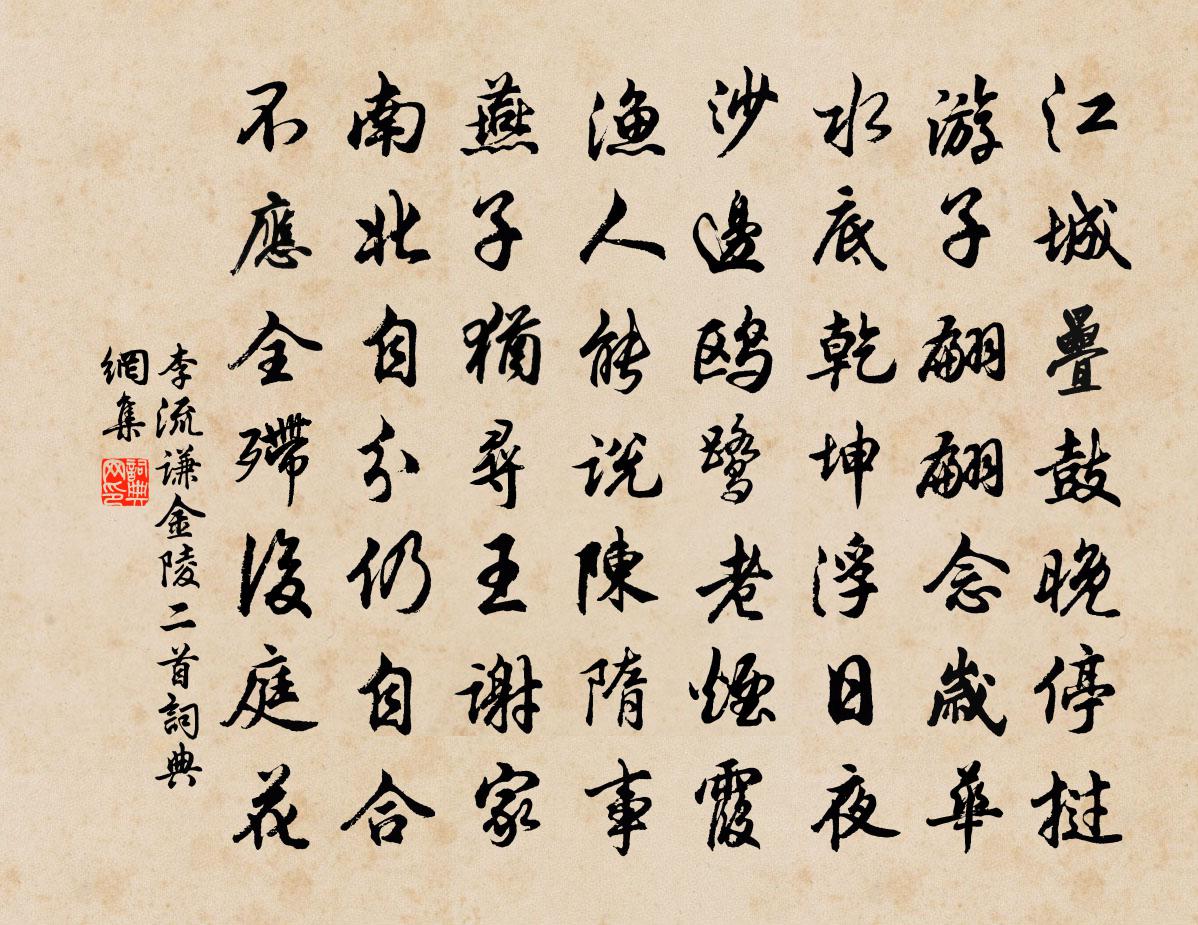 江城疊鼓晚停撾
游子翩翩念歲華
水底乾坤浮日夜
沙邊鷗鷺老煙霞
漁人能說陳隋事
燕子猶尋王謝家
南北自分仍自合
不應全殢後庭花
李流谦金陵二首詞典
網集
詞典网印